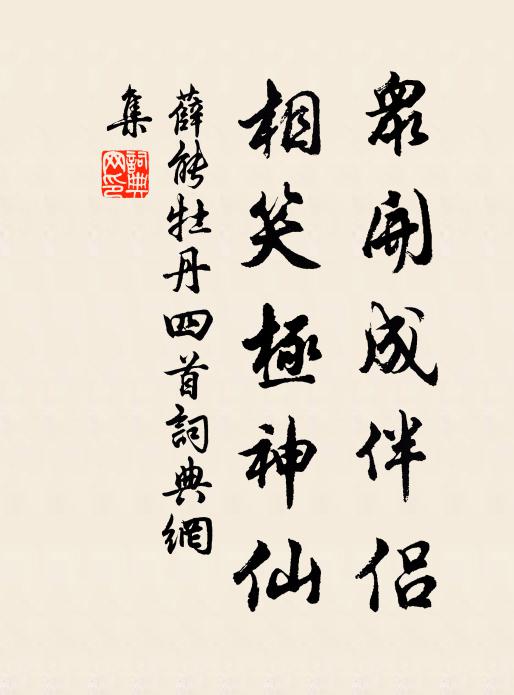 眾開成伴侶
相笑極神仙
薛能牡丹四首詞典網
集
詞典
网印